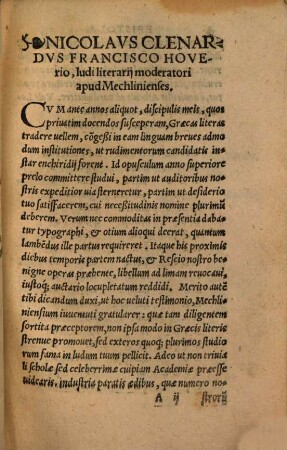 NICOLAVS CLENAR
DVS FRANCISCO HOVE
rio, ludi literarij moderatori
apud Mechlinienses.
CVM ante annos aliquot, discipulis meis, quos
priuatim docendos susceperam, Græcas literas
tradere uellem, cōgessi in eam linguam breues admo
dum institutiones, ut rudimentorum candidatis in-
star enchiridij forent. Id opusculum anno superiore
prelo committere studui, partim ut auditoribus no-
stris expeditior uia sterneretur, partim ut desiderio
tuo satisfacerem, cui necessitudinis nomine plurimū
deberem. Verum nec commoditas in præsentia daba-
tur typographi, & otium alioqui deerat, quantum
lambēdus ille partus requireret. Itaque his proximis
diebus temporis partem nactus, & Rescio nostro be-
nigne operas præbente, libellum ad limam reuocaui,
iustoq; auctario locupletatum reddidi. Merito autē
tibi dicandum duxi, ut hoc ueluti testimonio, Mech-
liniensium iuuentuti gratularer: quæ tam diligentem
sortita præceptorem, non ipsa modo in Græcis literis
strenue promouet, sed exteros quoq; plurimos studio
rum fama in ludum tuum pellicit. Adeo ut non triuia
li scholæ sed celeberrimæ cuipiam Academiæ præesse
uidearis, industria paratis ædibus, quæ numero no-
A ij strorū